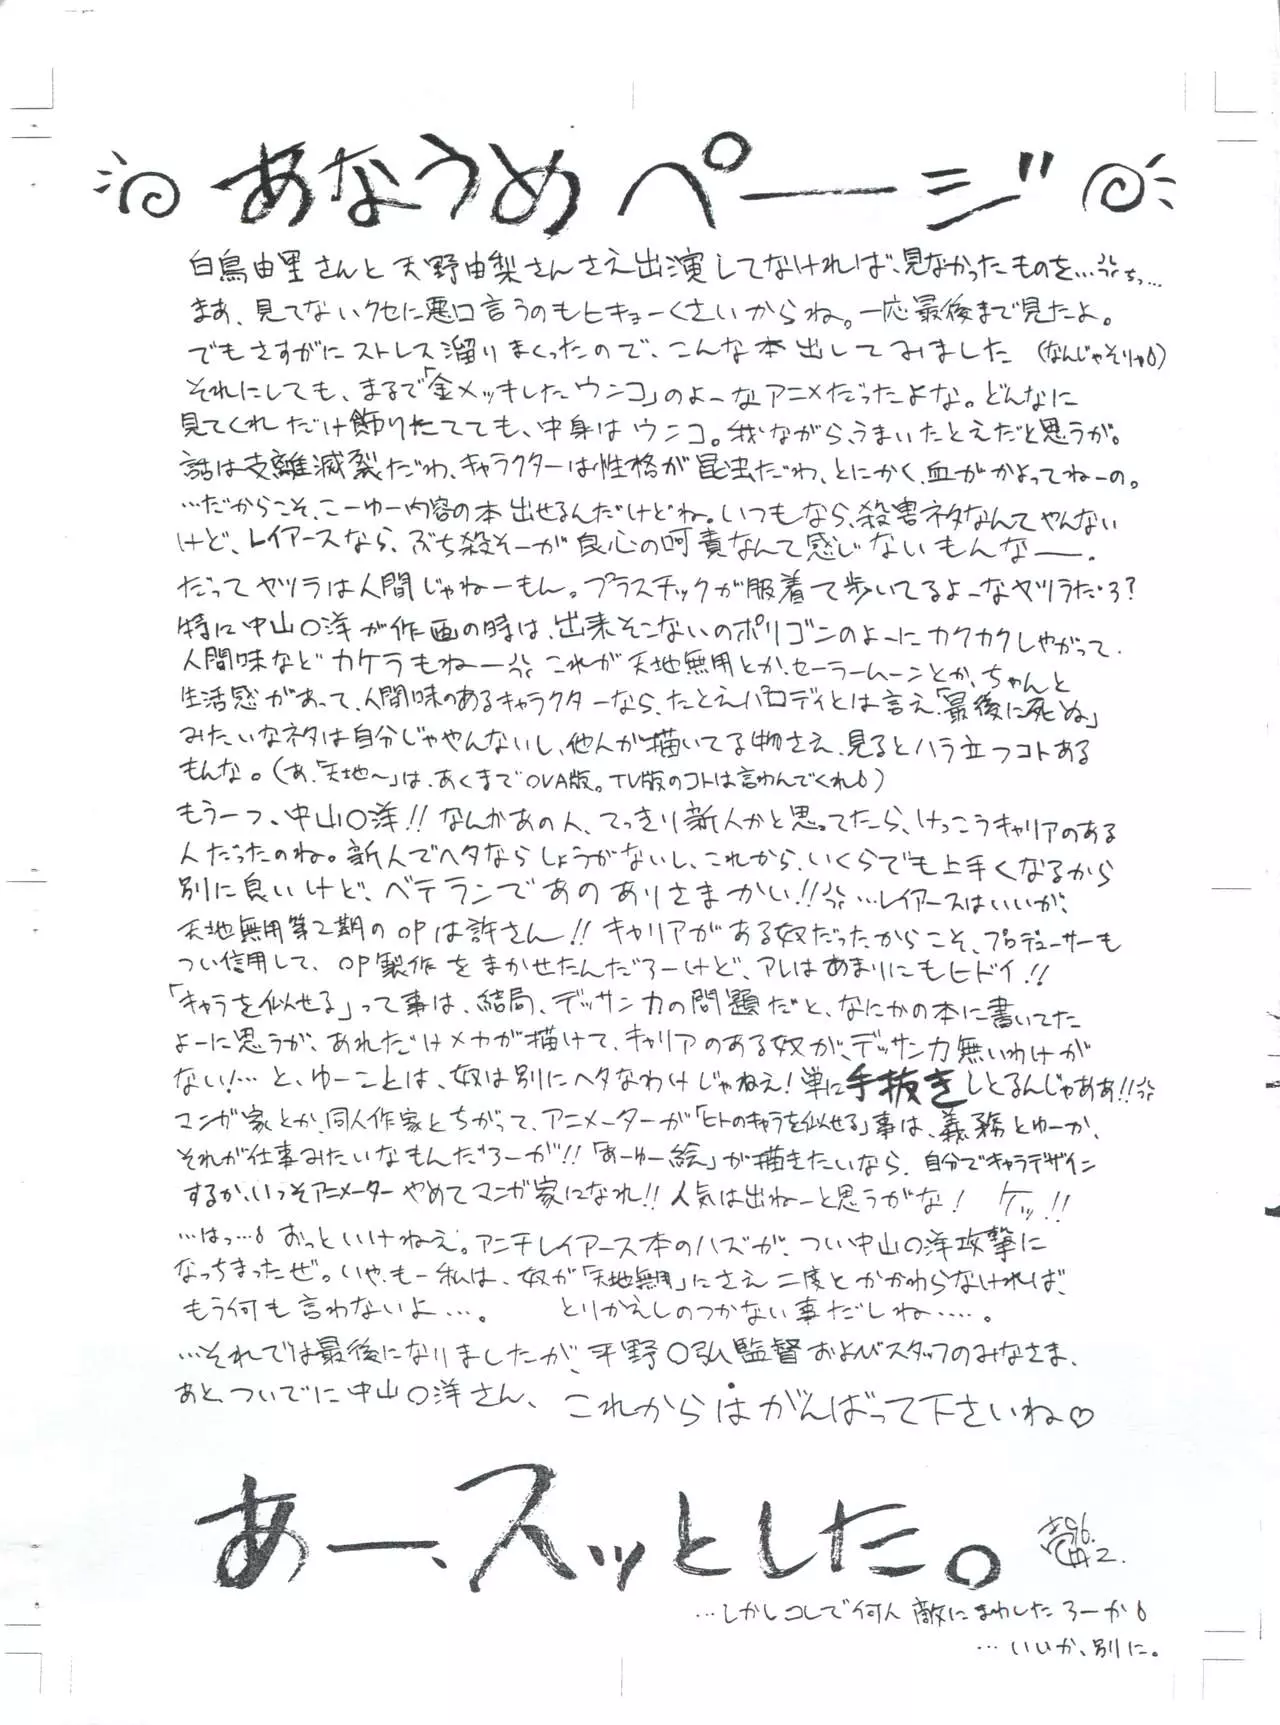 あなうめページ
白鳥由里さんと天野由梨さんさえ出演してなければ、見なかったものを…ちっ…
まあ、見てないクセに悪口言うのもヒキョーくさいからね。一応最後まで見たよ。
でもさすがにストレス溜りまくったので、こんな本出してみました (なんじゃそりゃ)
それにしても、まるで「金メッキしたウンコ」のよーなアニメだったよな。どんなに
見てくれだけ飾りたてても、中身はウンコ。我ながら、うまいたとえだと思うが。
話は支離滅裂だわ、キャラクターは性格が昆虫だわ、とにかく、血がかよってねーの。
…だからこそ、こーゆー内容の本出せるんだけどね。いつもなら、殺害ネタなんてやんない
けど、レイアースなら、ぶち殺そーが良心の呵責なんて感じないもんなー。
だってヤツラは人間じゃねーもん。プラスチックが服着て歩いてるよーなヤツラだろ?
特に中山〇洋が作画の時は、出来そこないのポリゴンのよーにカクカクしやがって、
人間味などカケラもねー これが天地無用とか、セーラームーンとか、ちゃんと
生活感があって、人間味のあるキャラクターなら、たとえパロディとは言え、「最後に死ぬ」
みたいなネタは自分じゃやんないし、他人が描いてる物さえ、見るとハラ立つコトある
もんな。(あ、「天地〜」は、あくまでOVA版。TV版のコトは言わんでくれ)
もう一つ、中山〇洋!! なんかあの人、てっきり新人かと思ってたら、けっこうキャリアのある
人だったのね。新人でヘタならしょうがないし、これから、いくらでも上手くなるから
別に良いけど、ベテランであのありさまかい!! …レイアースはいいが、
天地無用第2期のOPは許さん!! キャリアがある奴だったからこそ、プロデューサーも
つい信用して、OP製作をまかせたんだろーけど、アレはあまりにもヒドイ!!
「キャラを似せる」って事は、結局、デッサン力の問題だと、なにかの本に書いてた
よーに思うが、あれだけメカが描けて、キャリアのある奴が、デッサン力無いわけが
ない!… と、ゆーことは、奴は別にヘタなわけじゃねえ! 単に手抜きしとるんじゃああ!!
マンガ家とか、同人作家とちがって、アニメーターが「ヒトのキャラを似せる」事は、義務とゆーか、
それが仕事みたいなもんだろーが!! 「あーゆー絵」が描きたいなら、自分でキャラデザイン
するか、いっそアニメーターやめてマンガ家になれ!! 人気は出ねーと思うがな! ケッ!!
…はっ… おっといけねえ。アンチレイアース本のハズが、つい中山〇洋攻撃に
なっちまったぜ。いや、もー私は、奴が「天地無用」にさえ二度とかかわらなければ、
もう何も言わないよ…。 とりかえしのつかない事だしね……。
…それでは最後になりましたが、平野〇弘監督およびスタッフのみなさま、
あと、ついでに中山〇洋さん、これからはがんばって下さいね♡
あー、スッとした。
'96.
2.
…しかしコレで何人敵にまわしたろーか
…いいか、別に。